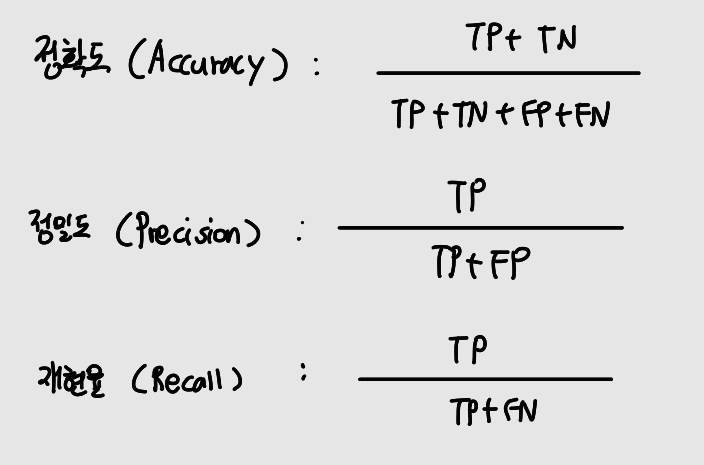 정확도 (Accuracy) : TP + TN
TP + TN + FP + FN
정밀도 (Precision) : TP
TP + FP
재현율 (Recall) : TP
TP + FN